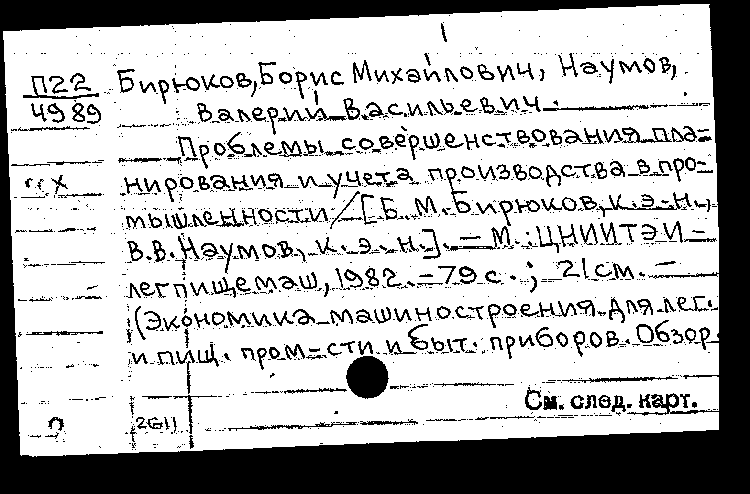 П22 Бирюков, Борис Михайлович, Наумов,
4989 Валерий Васильевич.
Проблемы совершенствования пла-
нирования и учета производства в про-
мышленности / [Б. М. Бирюков, к. э. н.,
В. В. Наумов, к. э. н.]. — М. : ЦНИИТЭИ-
легпищемаш, 1982. - 79 с. ; 21 см. —
(Экономика машиностроения для лег.
и пищ. пром-сти и быт. приборов. Обзор.
См. след. карт.
2611